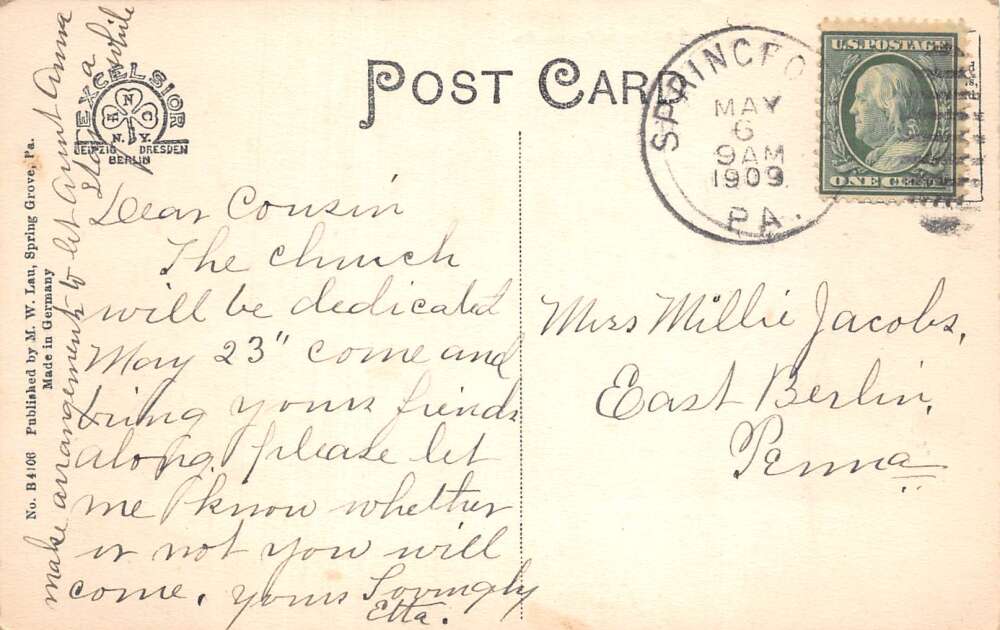 POST CARD
EXCELSIOR
H N C
N.Y.
LEIPZIG DRESDEN
BERLIN
SPRING
MAY
6
9AM
1909
PA.
U.S. POSTAGE
ONE CENT
No. B4106 Published by M. W. Lau, Spring Grove, Pa.
Made in Germany
Dear Cousin
The church
will be dedicated
May 23" come and
bring yours friends
along. please let
me know whether
or not you will
come. yours Lovingly
Etta.
make arrangements to let Aunt Anna
stay a
while
Miss Millie Jacobs,
East Berlin,
Penna